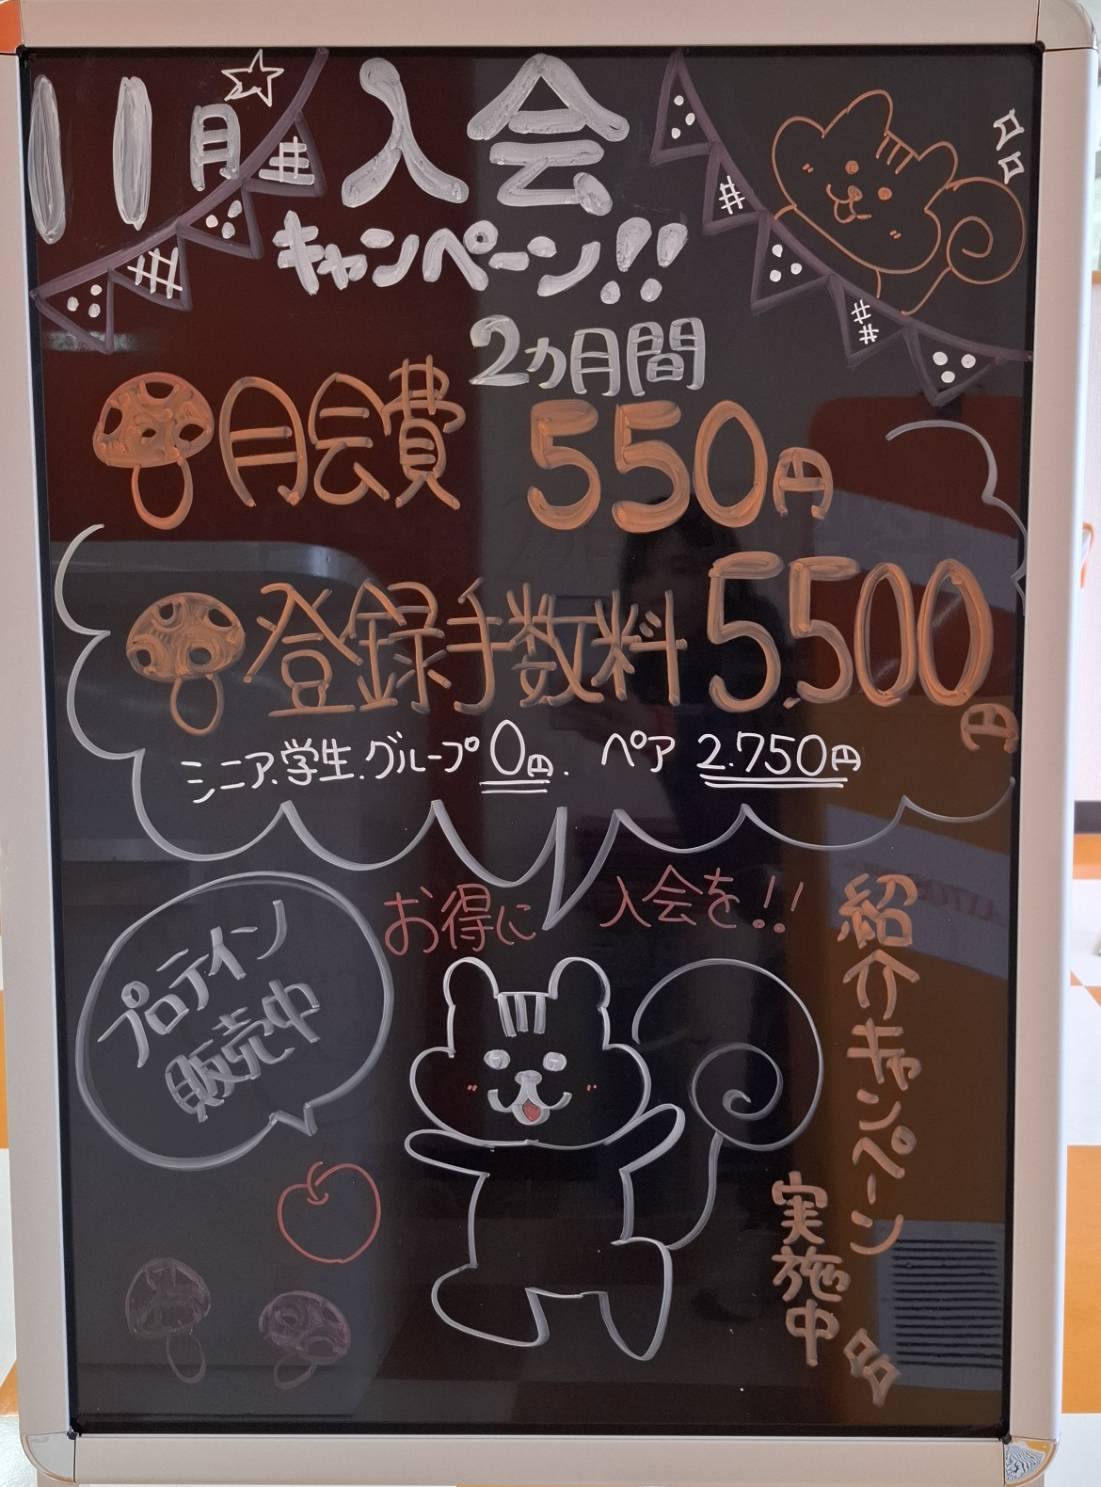 11月 入会
キャンペーン!!
2ヵ月間
月会費 550円
登録手数料 5,500円
シニア.学生.グループ 0円. ペア 2.750円
お得に 入会を!!
プロテイン
販売中
紹介キャンペーン
実施中